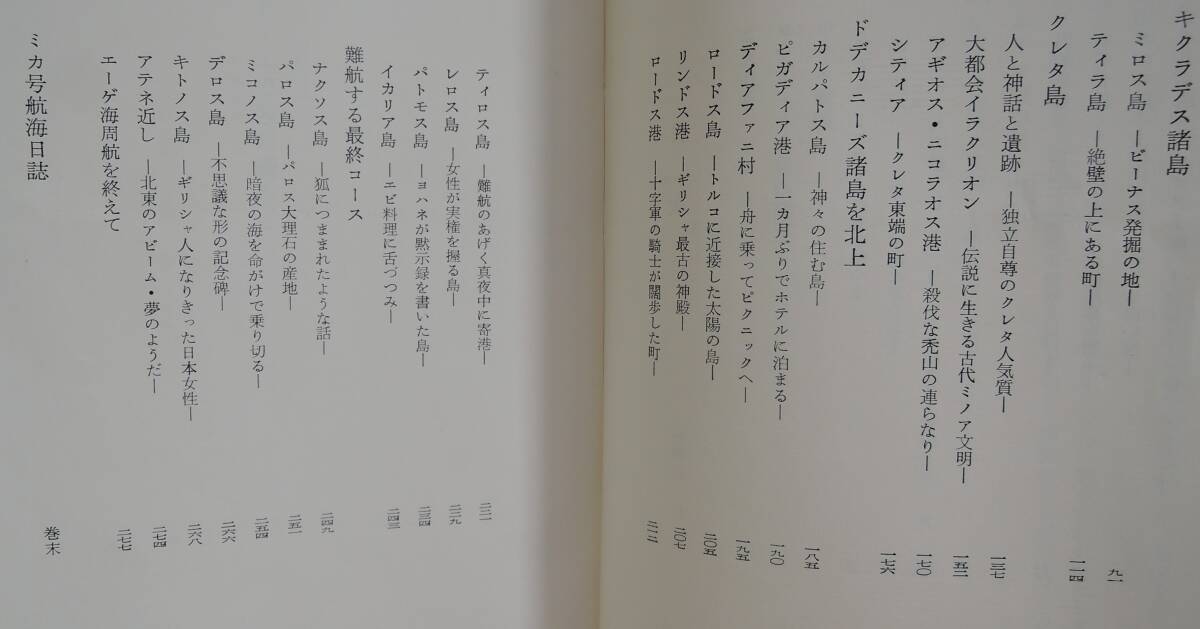 キクラデス諸島
ミロス島 ―ビーナス発掘の地― 九一
ティラ島 ―絶壁の上にある町― 一一四
クレタ島
人と神話と遺跡 ―独立自尊のクレタ人気質― 一三七
大都会イラクリオン ―伝説に生きる古代ミノア文明― 一五二
アギオス・ニコラオス港 ―殺伐な禿山の連らなり― 一七〇
シティア ―クレタ東端の町― 一七六
ドデカニーズ諸島を北上
カルパトス島 ―神々の住む島― 一八五
ピガディア港 ―一カ月ぶりでホテルに泊まる― 一九〇
ディアファニ村 ―舟に乗ってピクニックへ― 一九五
ロードス島 ―トルコに近接した太陽の島― 二〇五
リンドス港 ―ギリシャ最古の神殿― 二〇七
ロードス港 ―十字軍の騎士が闊歩した町― 二一二
ティロス島 ―難航のあげく真夜中に寄港― 二二一
レロス島 ―女性が実権を握る島― 二二九
パトモス島 ―ヨハネが黙示録を書いた島― 二三四
イカリア島 ―エビ料理に舌づつみ― 二四三
難航する最終コース
ナクソス島 ―狐につままれたような話― 二四九
パロス島 ―パロス大理石の産地― 二五一
ミコノス島 ―暗夜の海を命がけで乗り切る― 二五四
デロス島 ―不思議な形の記念碑― 二六六
キトノス島 ―ギリシャ人になりきった日本女性― 二六八
アテネ近し ―北東のアビーム・夢のようだ― 二七四
エーゲ海周航を終えて 二七七
ミカ号航海日誌 巻末